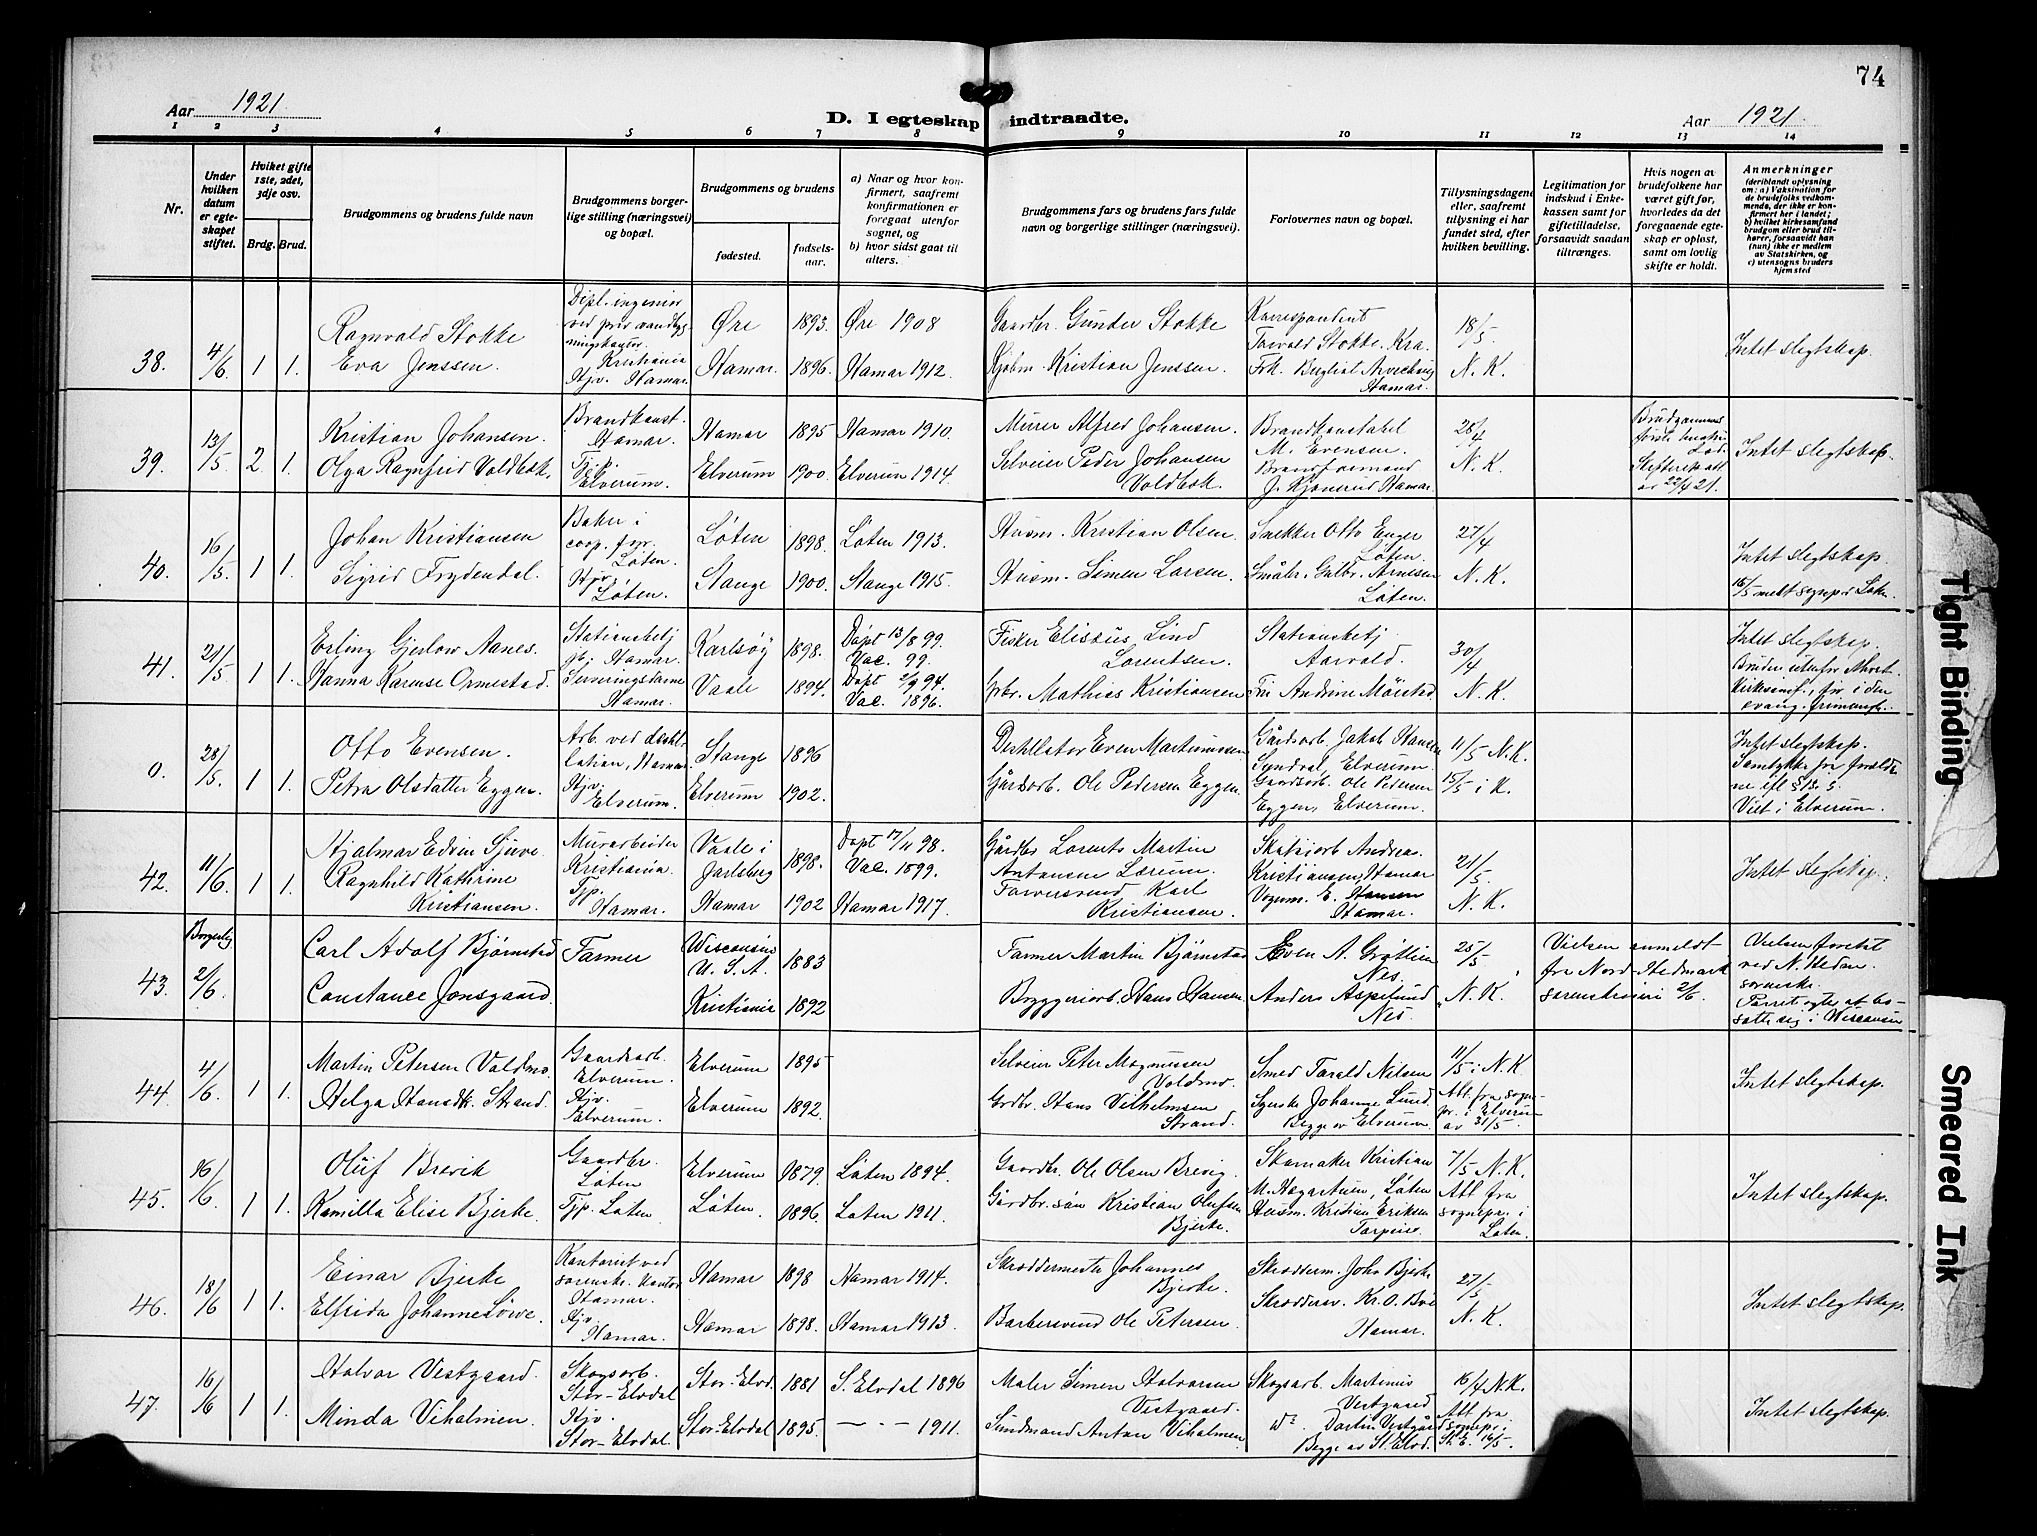 74
Aar 1921.
D. I egteskap indtraadte.
Aar 1921.
1 2 3 4 5 6 7 8 9 10 11 12 13 14
Nr.
Under hvilken datum er egteskapet stiftet.
Hvilket gifte 1ste, 2det, 3dje osv.
Brdg. Brud.
Brudgommens og brudens fulde navn
Brudgommens borgerlige stilling (næringsvei) og bopæl.
Brudgommens og brudens
fødested.
fødselsaar.
a) Naar og hvor konfirmert, saafremt konfirmationen er foregaat utenfor sognet, og
b) hvor sidst gaat til alters.
Brudgommens fars og brudens fars fulde navn og borgerlige stillinger (næringsvei).
Forlovernes navn og bopæl.
Tillysningsdagene eller, saafremt tillysning ei har fundet sted, efter hvilken bevilling.
Legitimation for indskud i Enkekassen samt for giftetilladelse, forsaavidt saadan tiltrænges.
Hvis nogen av brudefolkene har været gift før, hvorledes da det foregaaende egteskap er opløst, samt om lovlig skifte er holdt.
Anmerkninger
(deriblandt oplysning om: a) Vaksination for de brudefolks vedkommende, der ikke er konfirmert her i landet; b) hvilket kirkesamfund brudgom eller brud tilhører, forsaavidt han (hun) ikke er medlem av Statskirken, og c) utensogns bruders hjemsted
38. 4/6 1 1.
Ragnvald Stokke
Eva Jenssen.
Dipl. ingeniør
Kristiania
Hjv. Hamar.
Øre 1893. Øre 1908
Hamar. 1896. Hamar 1912.
Gaardbr. Gunder Stokke
Kjøbm. Kristian Jenssen.
Korrespondent
Torvald Stokke. Kra.
Hamar.
18/5.
N. K.
Intet slegtskap.
39. 13/5 2. 1.
Kristian Johansen.
Olga Ragnfrid Voldbæk.
Brandkonst.
Hamar.
Tjp.
Elverum.
Hamar 1895 Hamar 1910.
Elverum 1900. Elverum 1914.
Murer Alfred Johansen.
Selveier Peder Johansen
Voldbæk.
Brandkonstabel
M. Evensen.
Brandformand
Hamar.
28/4
N. K.
Brudgommens
første hustru
død.
22/4 21.
Intet slegtskap.
40. 16/5. 1 1.
Johan Kristiansen
Sigrid Frydendal.
Baker i
coop. for.
Løten.
Hjv
Løten.
Løten 1898. Løten 1913.
Stange 1900. Stange 1915.
Husm. Kristian Olsen.
Husm. Simen Larsen.
Snekker Otto Enger
Løten.
Småbr. Gulbr. Arnesen
Løten.
27/4
N. K.
Intet slegtskap.
16/5 melt sognepr i Løten.
41. 21/5 1 1.
Erling Gjerløw Aanes.
Hanna Karense Ormestad.
Stationsbetj
Hamar.
Serveringsdame
Hamar.
Karlsøy 1898. Døpt 13/8 99.
Vac. 99.
Vaale 1894. Døpt 2/9 94.
Vac. 1896.
Fisker Elisæus Lind
Lorentsen.
Grbr. Mathias Kristiansen
Stationsbetj
Aarvold.
Frk Andrine Möistad
30/4
N. K.
Intet slegtskap.
Bruden utenfor
i den
0. 28/5 1 1.
Otto Evensen.
Petra Olsdatter Eggen.
Arb. ved destillation, Hamar
Hjv.
Elverum.
Stange 1896
Elverum 1902.
Destillatør Even Martinussen
Gårdsarb. Ole Pedersen Eggen.
Gårdsarb. Jakob Hansen
Syndvål, Elverum.
Gårdsarb. Ole Pedersen
Eggen, Elverum.
11/5 N. K.
15/5 i K.
Intet slegtskap.
Samtykke fra forældrene efl § 13. 5.
Viet i Elverum.
42. 11/6 1 1.
Hjalmar Edvin Sjuve.
Ragnhild Kathrine
Kristiansen.
Murarbeider
Kristiania.
Tjp.
Hamar.
Vaale i
Jarlsberg 1898. Døpt 17/11 98.
Vac. 1899.
Hamar 1902 Hamar 1917.
Gårdbr Lorents Martin
Antonsen Lærum.
Farversvend Karl
Kristiansen.
Andreas
Kristiansen, Hamar
Vognm. E. Hansen
Hamar.
21/5.
N. K.
Intet slegtskap.
43. Borgerlig 2/6.
Carl Adolf Bjørnstad
Constance Jonsgaard.
Farmer
Wisconsin
U. S. A. 1883
Kristiania 1892
Farmer Martin Bjørnstad
Bryggeriarb. Hans Hansen.
Even A. Grøtlien
Nes.
Anders Aspelund
Nes.
25/5.
N. K.
Vielsen anmeldt
fra Nord-Hedmark
sorenskriveri 2/6.
Vielsen foretat
ved N. Hedm.
sorenskr.
Parret agter at bosætte sig i Wisconsin
44. 4/6. 1 1.
Martin Petersen Voldmo.
Helga Hansdtr. Strand.
Gaardsarb.
Elverum.
Hjv.
Elverum.
Elverum 1895
Elverum 1892.
Selveier Peter Magnussen
Voldmo.
Grdbr. Hans Vilhelmsen
Strand.
Smed Torald Nilsen
Johanne Lund
Begge av Elverum.
11/5 i N. K
Att. fra sognepr. i Elverum
av 31/5.
Intet slegtskap.
45. 16/6. 1 1.
Oluf Brevik
Kamilla Elise Bjerke.
Gaardbr.
Løten
Tjp. Løten
Elverum 1879. Løten 1894.
Løten. 1896. Løten 1911.
Gaardbr. Ole Olsen Brevig.
Gårdbr. søn Kristian Olufsen
Bjerke.
Skomaker Kristian
Løten
Husm. Kristian Eriksen
7/5 N. K.
Att fra
sognepr. i
Løten.
Intet slegtskap.
46. 18/6 1 1.
Einar Bjerke
Elfrida Johanne Löwe.
Kontorist ved
sorenskr. kontor
Hamar.
Hjv.
Hamar.
Hamar 1898 Hamar 1914.
Hamar 1898. Hamar 1913.
Skræddermester Johannes
Bjerke.
Barbersvend Ole Petersen.
Skrædderm. John Bjerke
Skræddersv. Kr. O. Bøe
Hamar.
27/5
N. K.
Intet slegtskap.
47. 16/6 1 1.
Halvor Vestgaard.
Minda Viholmen.
Skogsarb.
Stor-Elvdal
Hjv.
Stor-Elvdal.
Stor-Elvd. 1881 S. Elvdal 1896
Stor-Elvdal 1895. — - — 1911.
Maler Simen Halvorsen
Vestgaard.
Sundmand Anton Viholmen
Skogsarb. Martinius
Vestgaard
Do. Vestgård
Begge av St. Elvd.
16/4 N. K.
Att fra
sognepr. i
St. E. 16/5.
Intet slegtskap.
Tight Binding
Smeared Ink